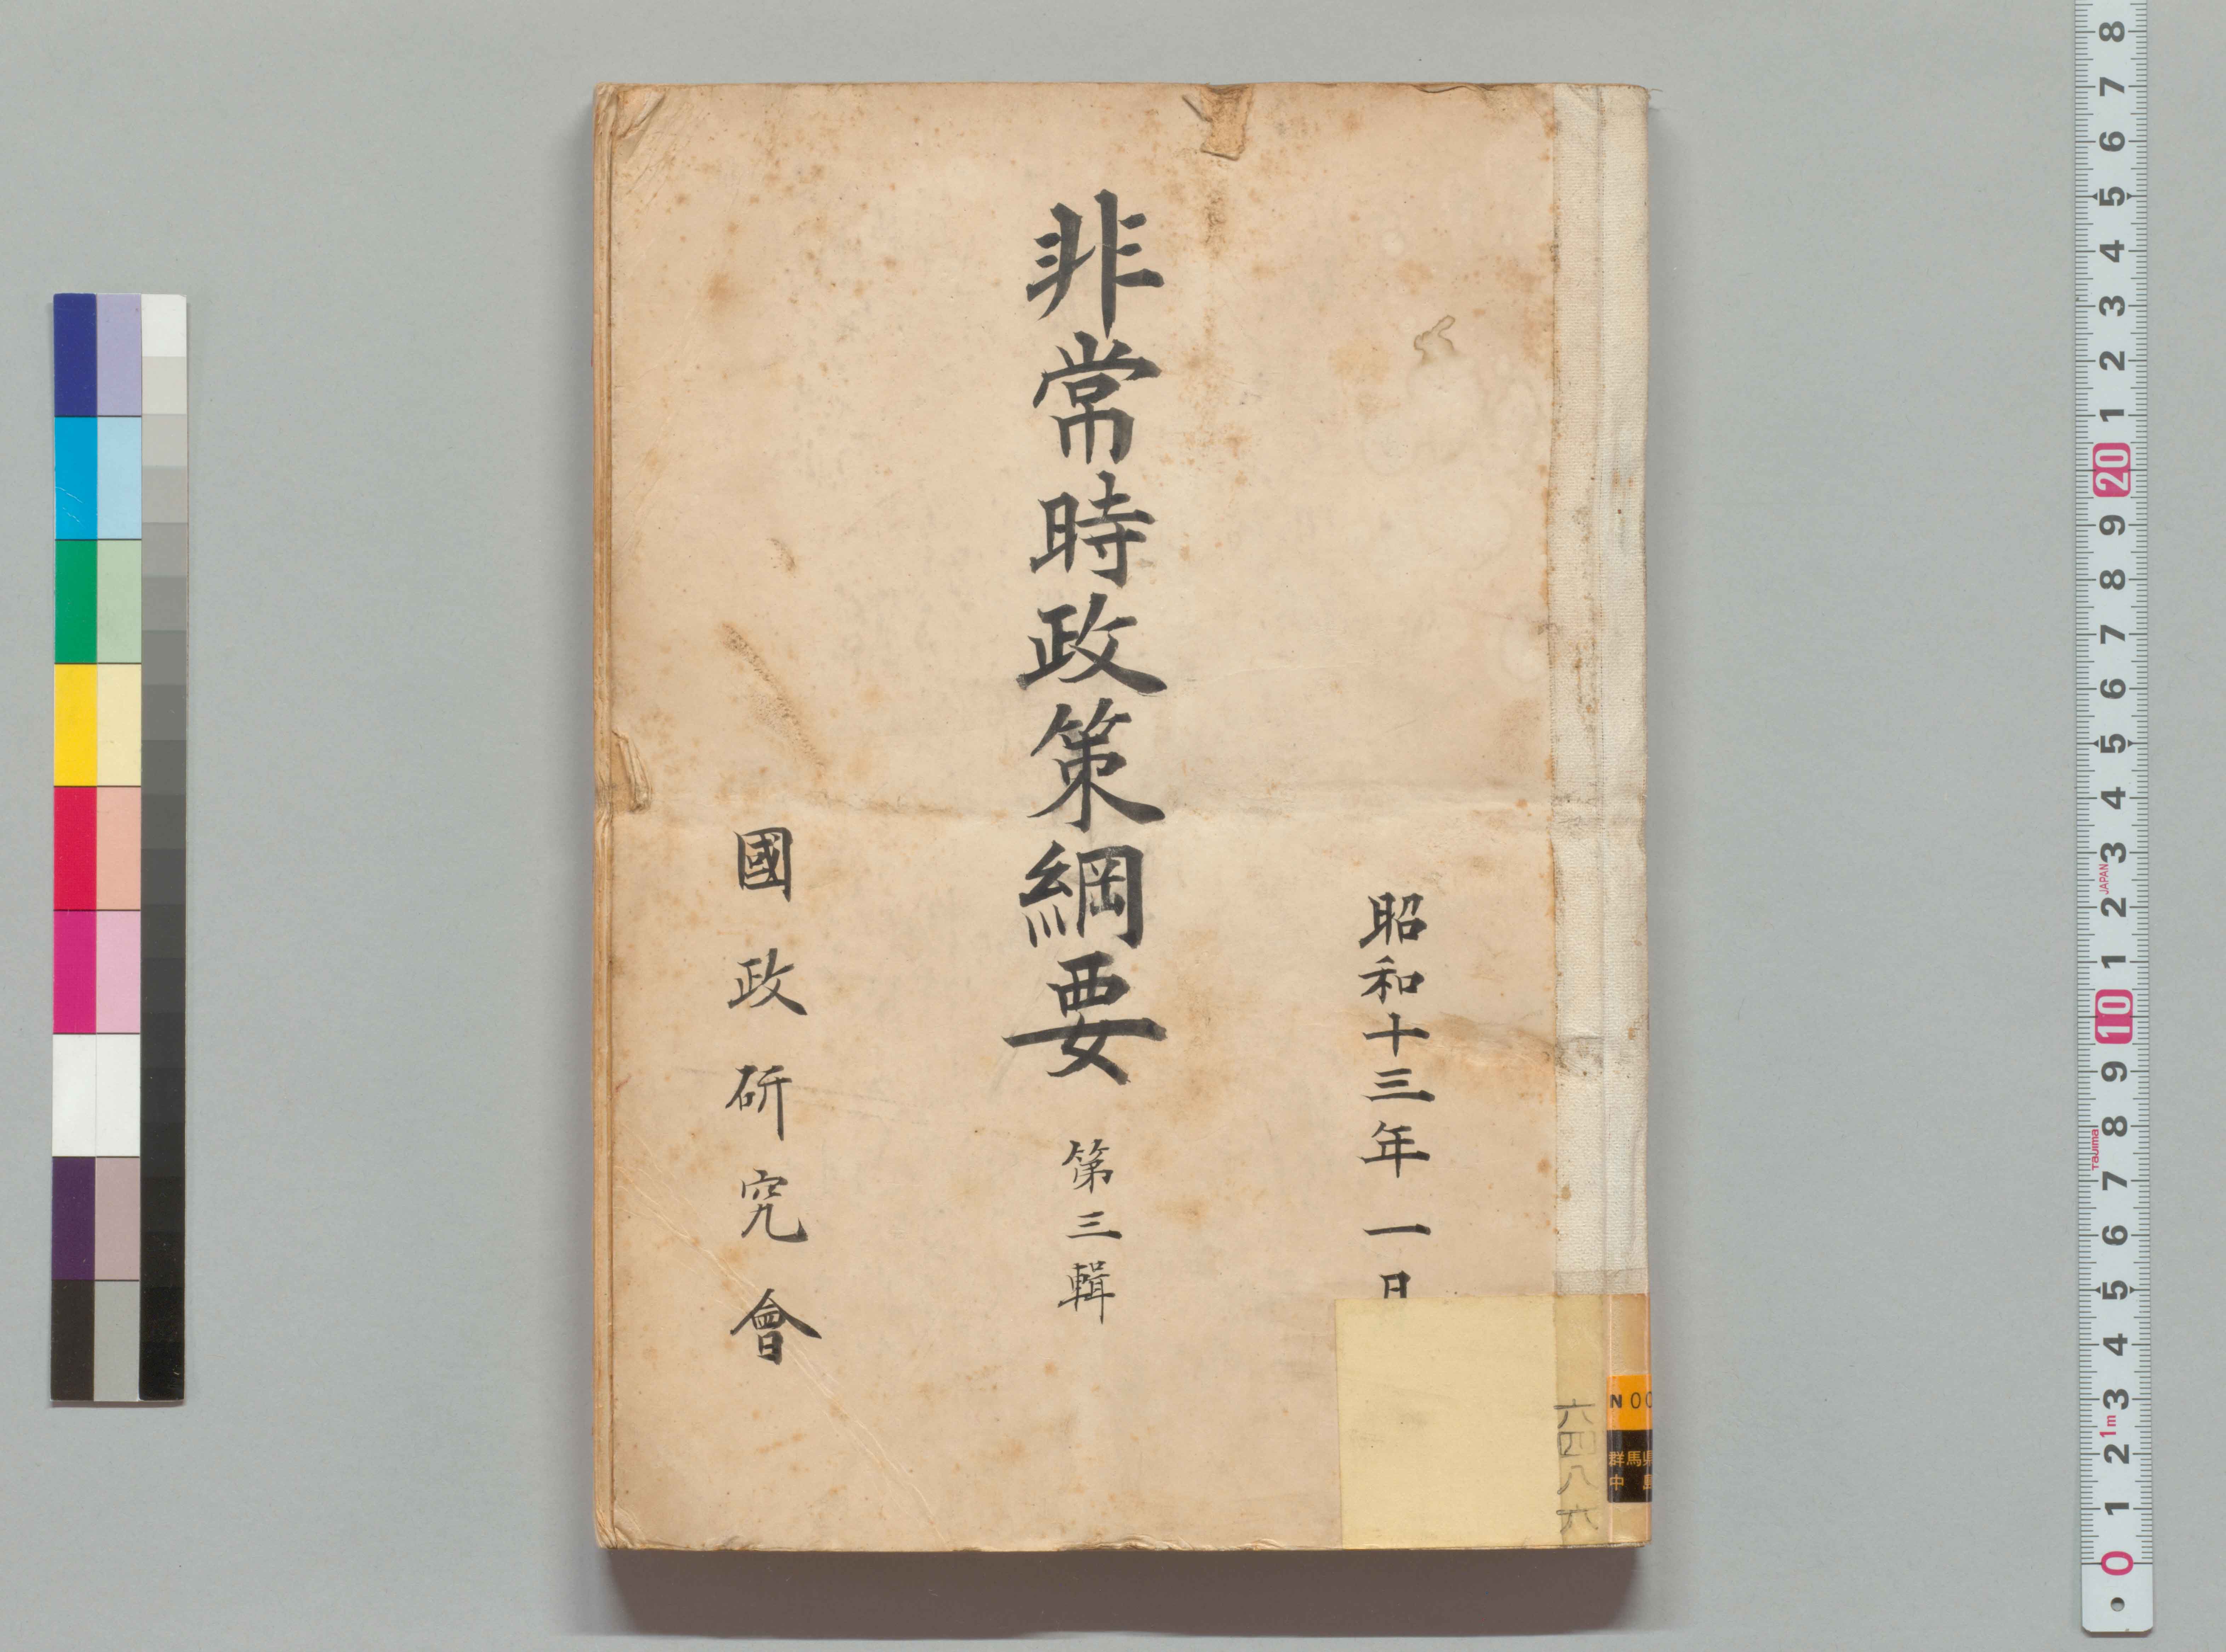 昭和十三年一月
非常時政策綱要 第三輯
國政研究會
六四八六
N00
群馬県
中
8 7 6 5 4 3 2 1 20 9 8 7 6 5 4 3 2 1 10 9 8 7 6 5 4 3 2 1 0
JAPAN
Tajima
1m